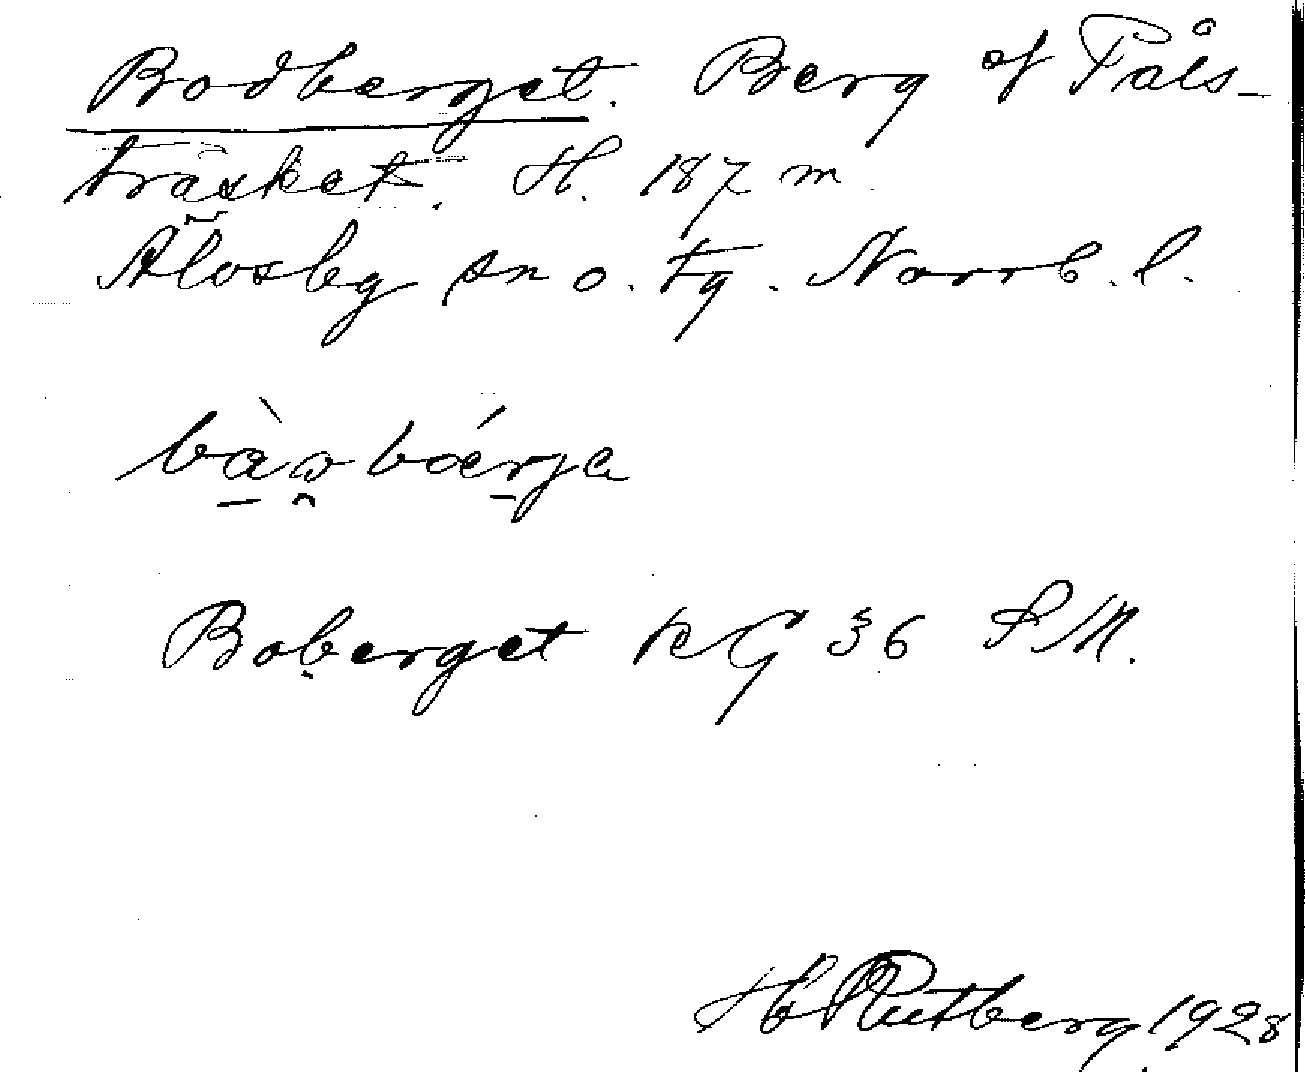 Bodberget. Berg vf Påls-
träsket. H. 187 m
Älvsby sn o. tg. Norrb. l.
Boberget KG 36 SM.
H Rutberg 1928